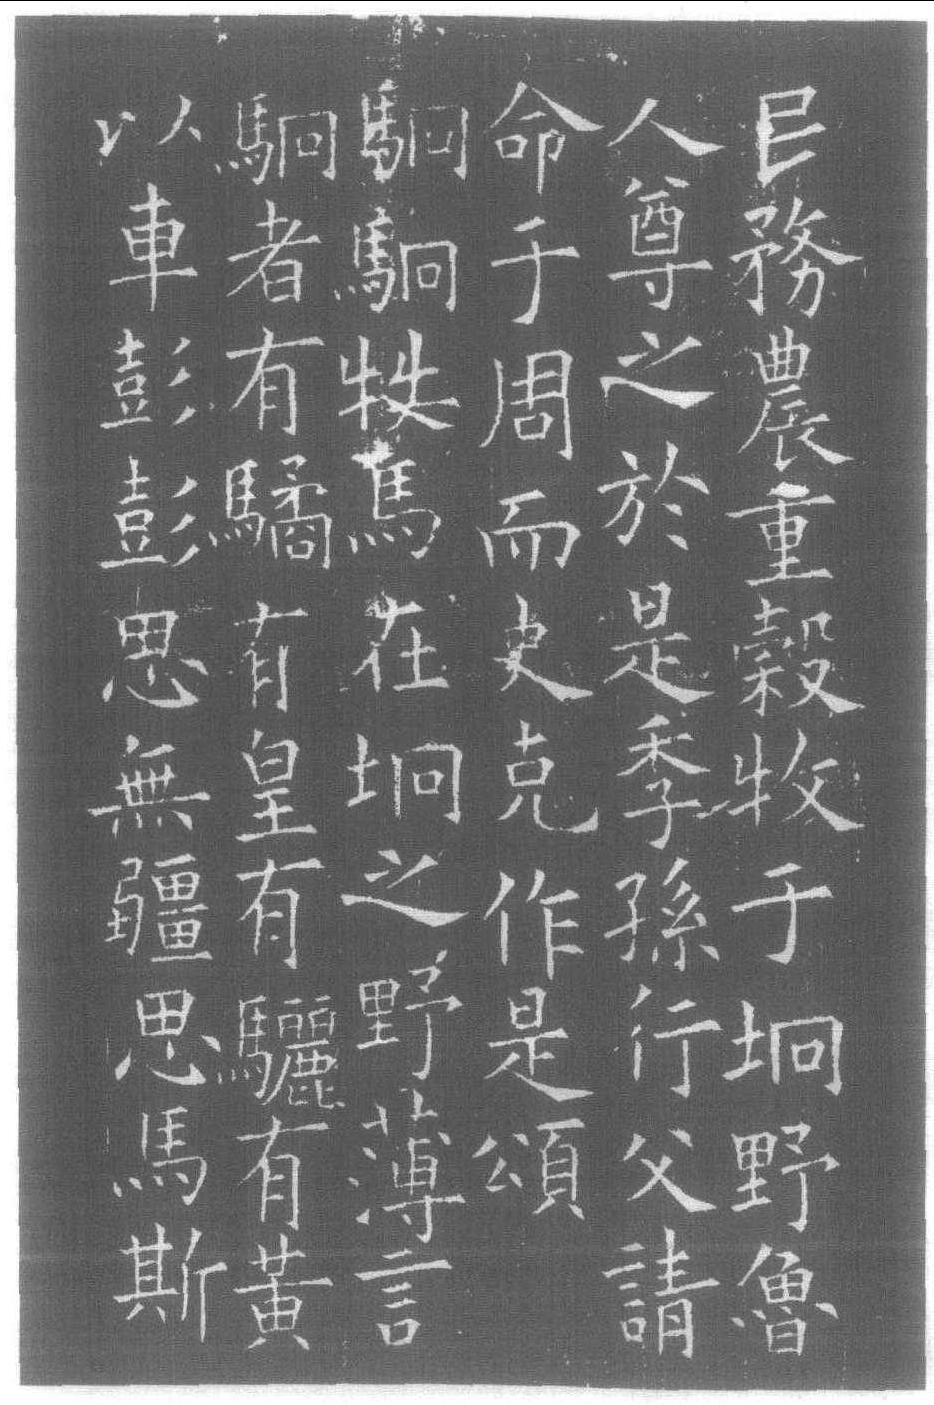 民務農重穀牧于坰野魯
人尊之於是季孫行父請
命于周而史克作是頌
駉駉牡馬在坰之野薄言
駉者有驈有皇有驪有黃
以車彭彭思無疆思馬斯